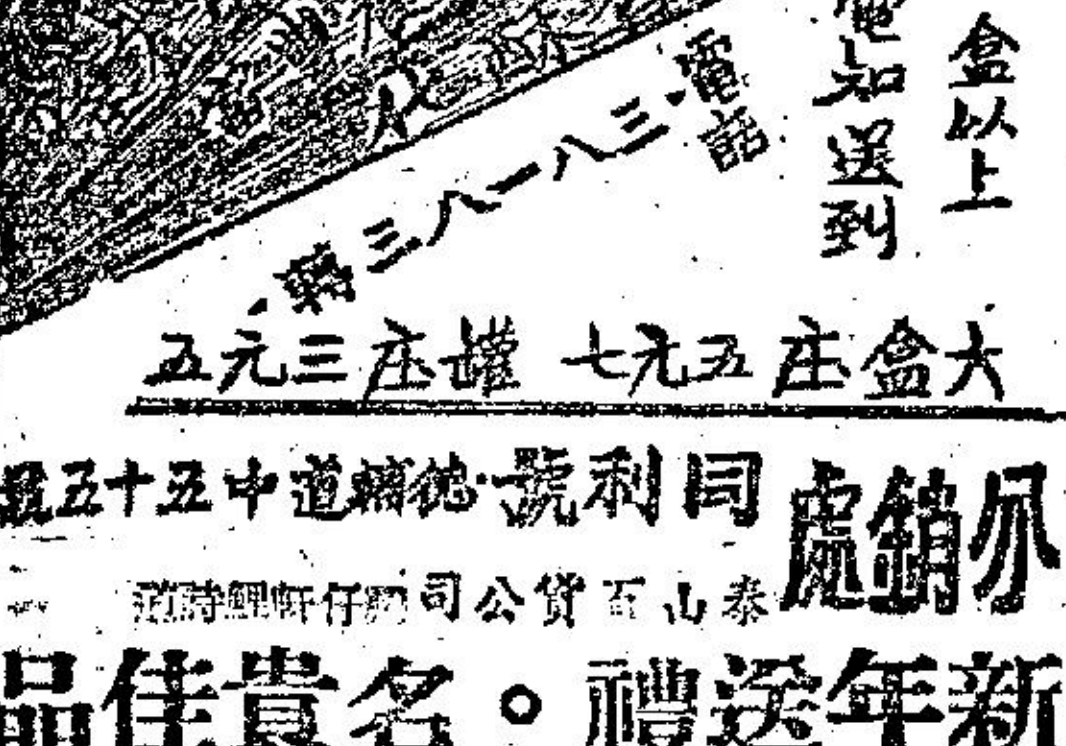 盒以上
電知送到
電話·三八一八三轉·
大盒庄五元七 罐庄三元五
分銷處
司利號·德輔道中五十五號
泰山百貨公司 仔軒鯉詩
新年送禮。名貴佳品